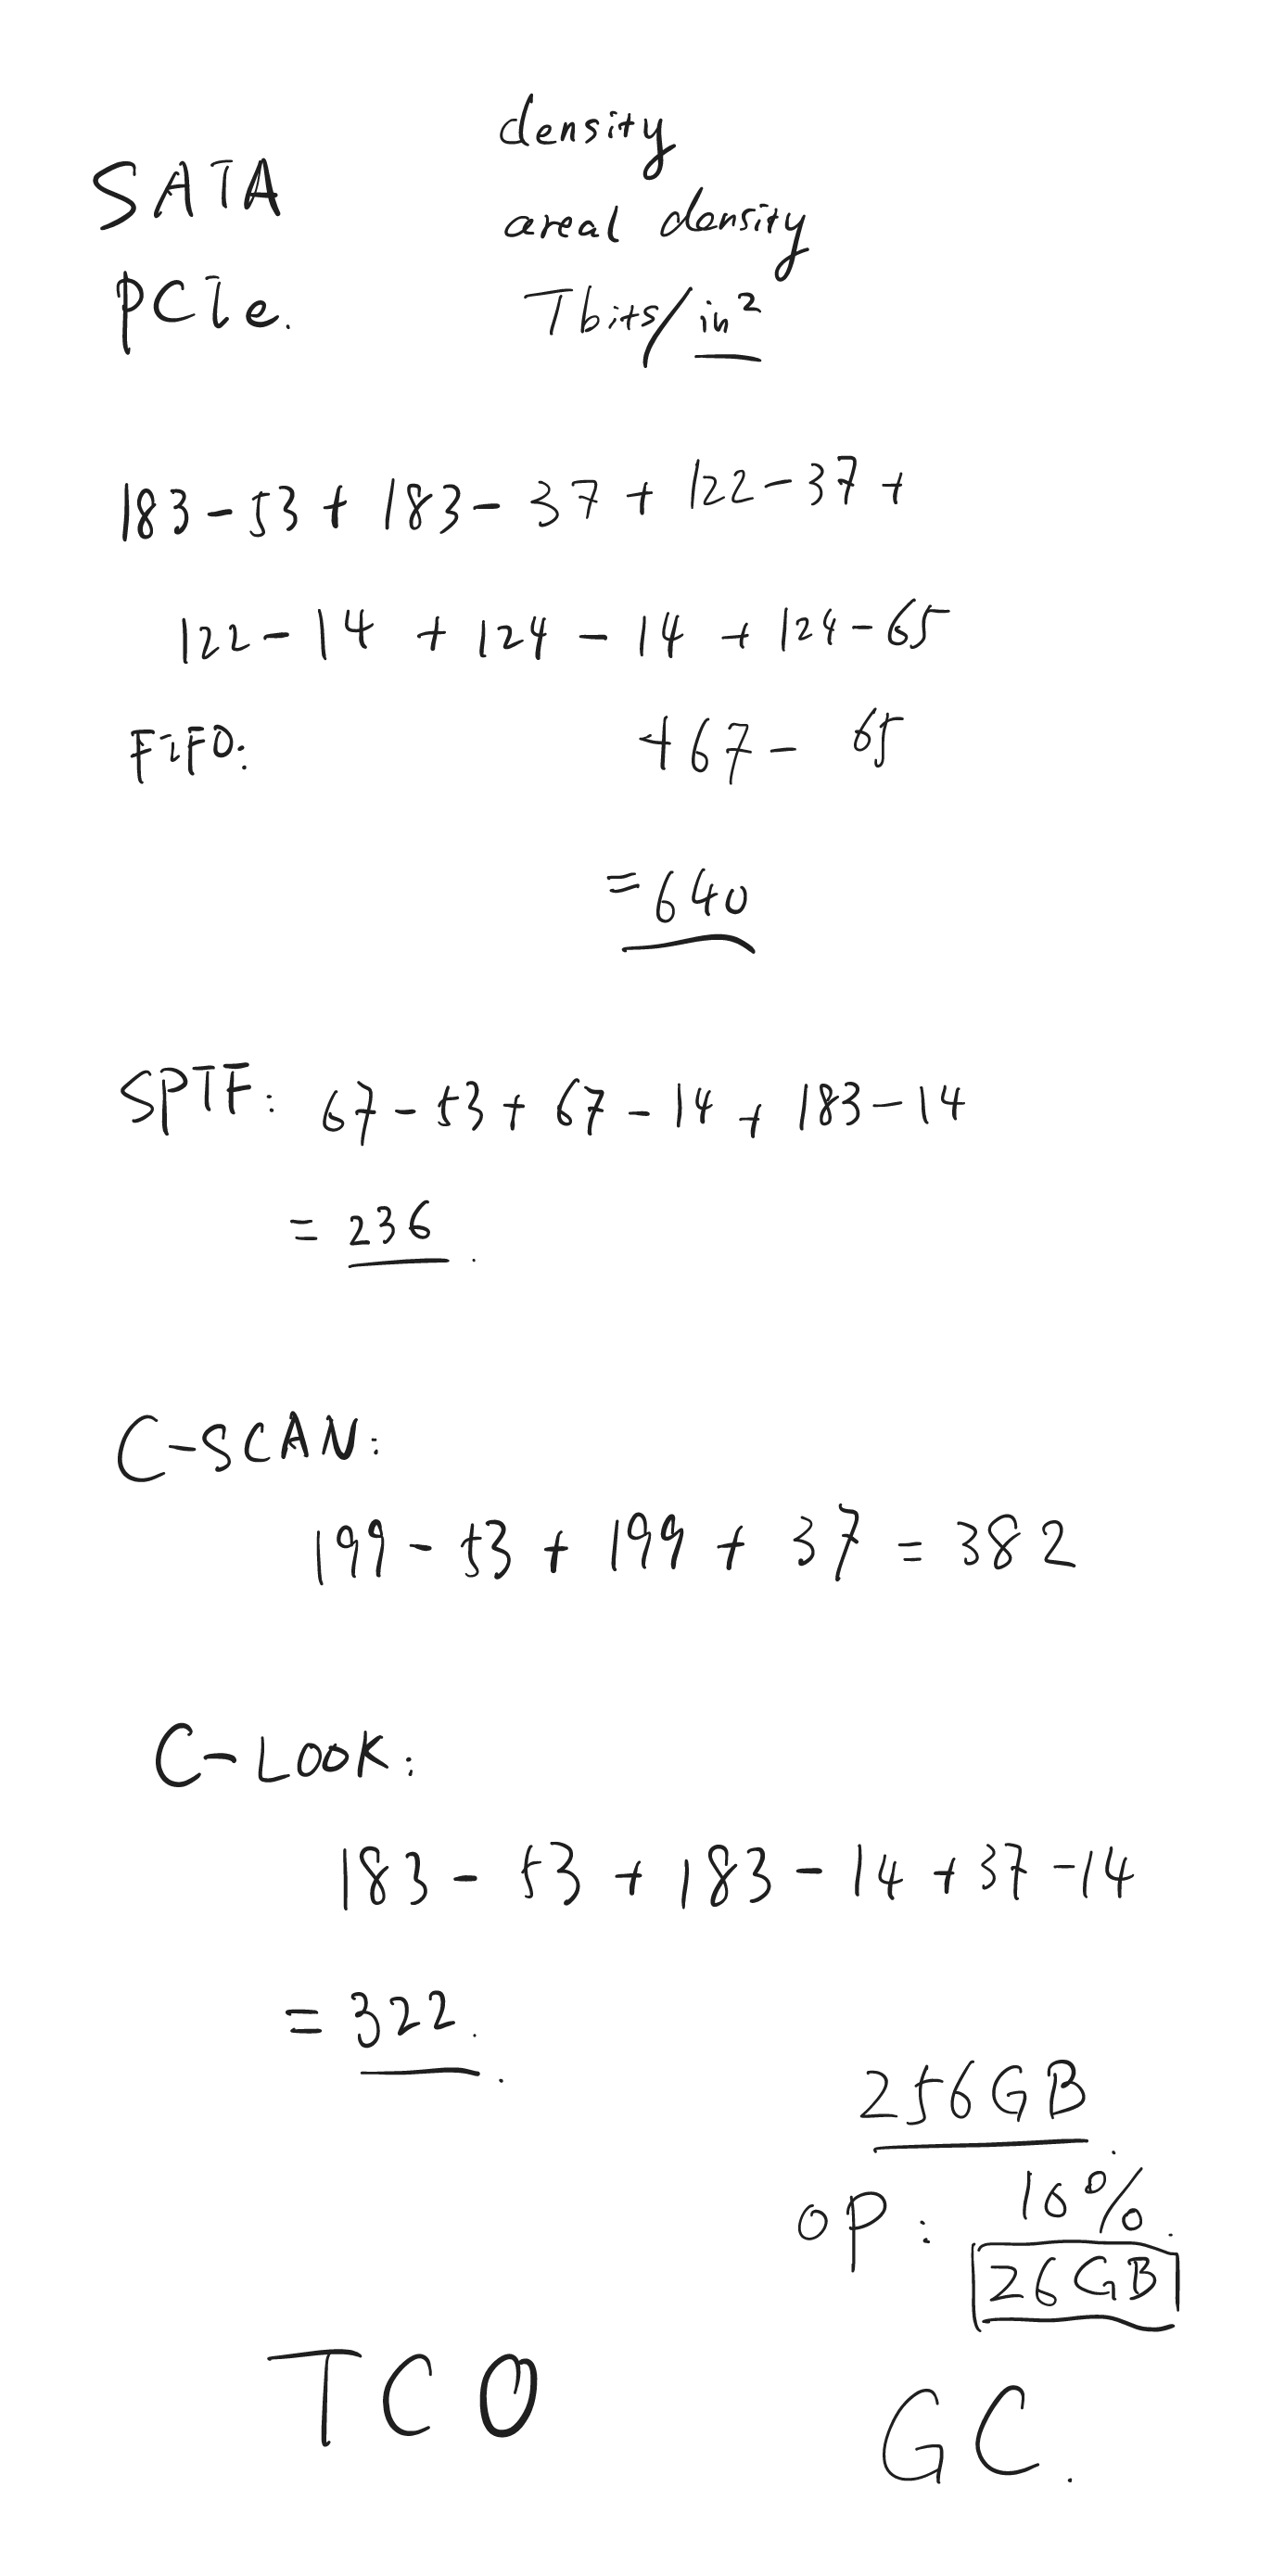 SATA
PCIe.
density
areal density
Tbits/in²
183-53+183-37+122-37+
122-14+124-14+124-65
FiFO:
+67-65
=640
SPTF: 67-53+67-14+183-14
=236.
C-SCAN:
199-53+199+37=382
C-LOOK:
183-53+183-14+37-14
=322.
256GB.
OP: 10%.
26GB
TCO
GC.